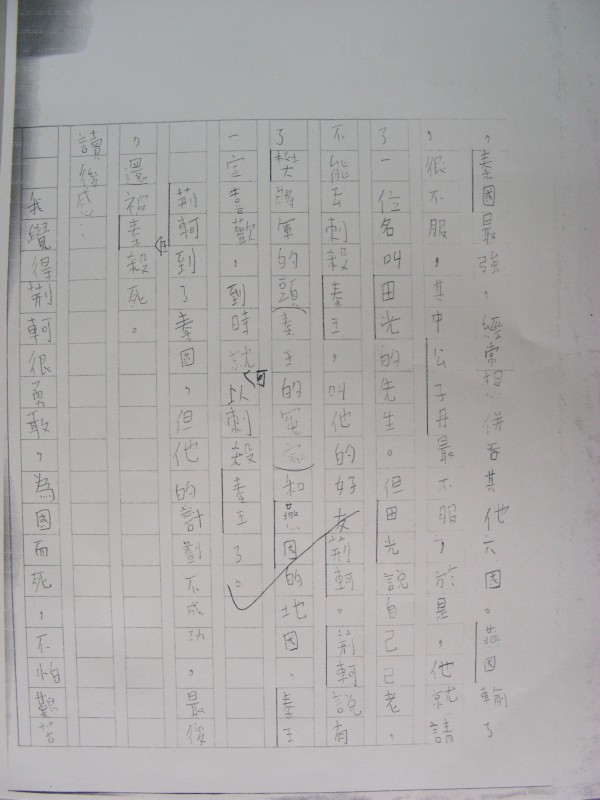 ，秦國最強，經常想併吞其他六國。燕國輸了
，很不服，其中公子丹最不服，於是，他就請
了一位名叫田光的先生。但田光說自己已老，
不能去刺殺秦王，叫他的好友荊軻。荊軻說有
了樊將軍的頭(秦王的冤家)和燕國的地圖，秦王
一定喜歡，到時就可以刺殺秦王了。
荊軻到了秦國，但他的計劃不成功，最後
，還被秦王殺死。
讀後感：
我覺得荊軻很勇敢，為國而死，不怕艱苦